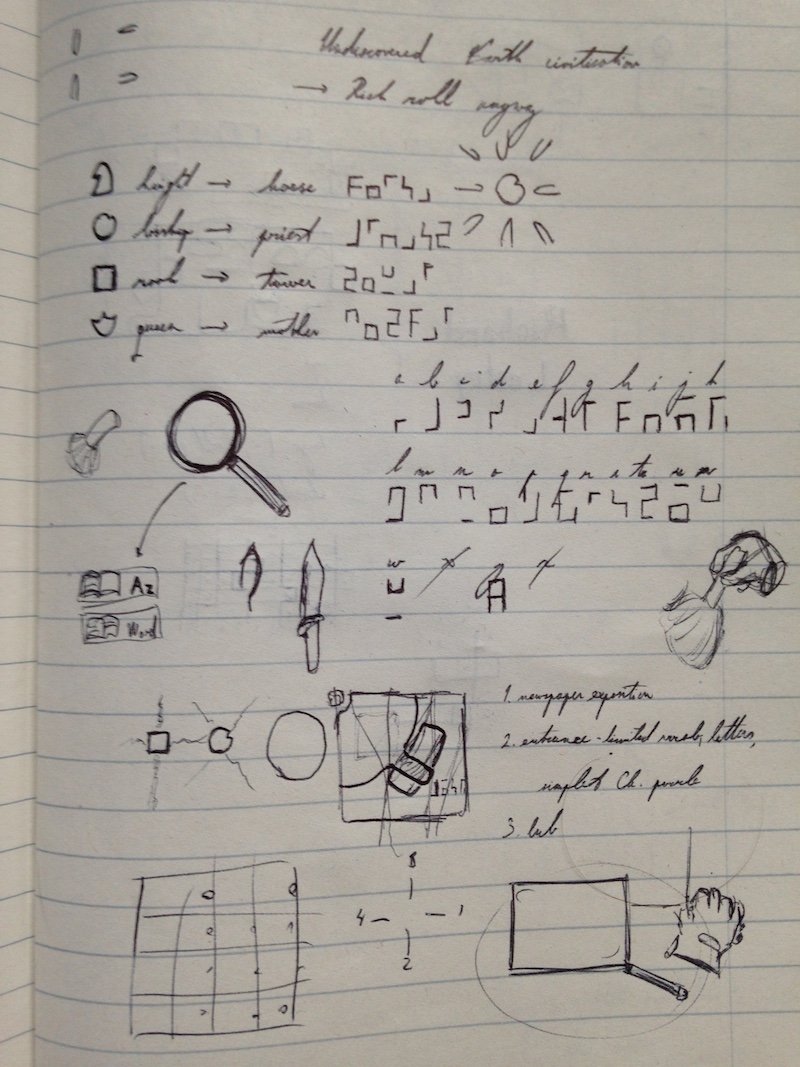 Undiscovered Earth civilization
→ Rich roll anyway
knight → horse
bishop → priest
rook → tower
queen → mother
a b c d e f g h i j k
l m n o p q r s t u v
w x y z
Az
Word
1. newspaper exposition
2. entrance - limited vocab, letters,
implicit Ch. puzzle
3. hub
8
4 1
2